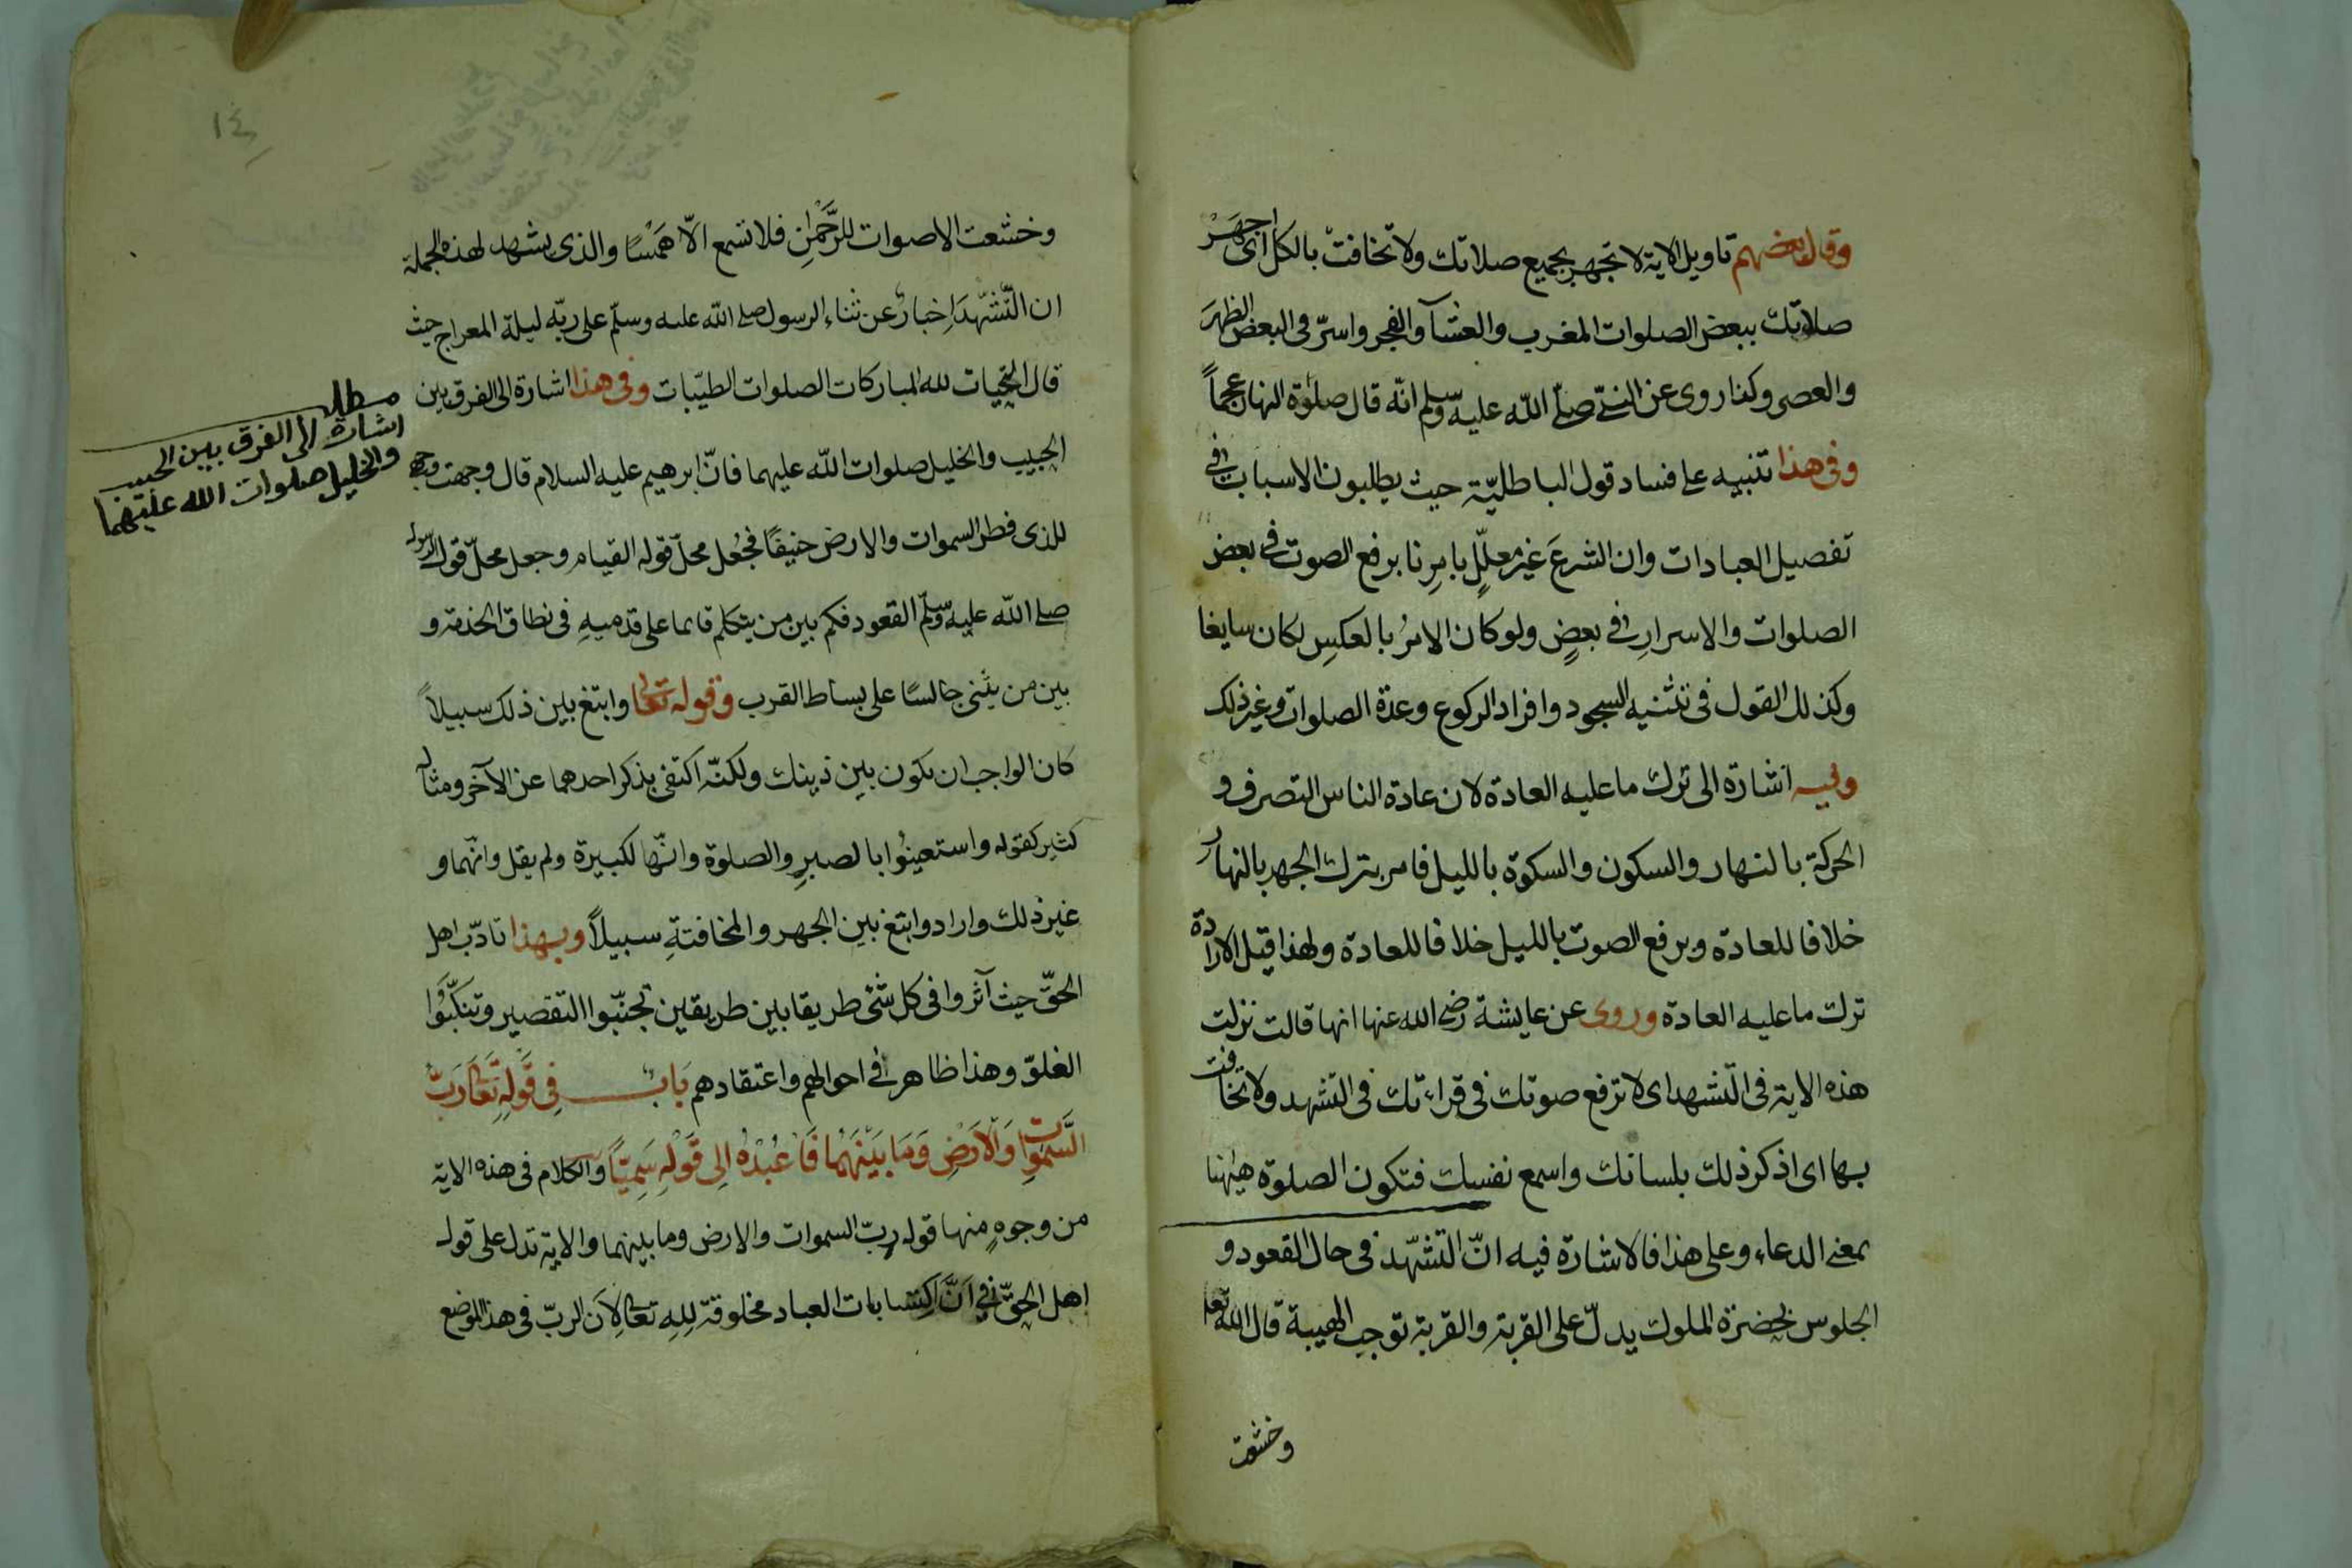 وقال بعضهم تاويل الاية لا تجهر بجميع صلاتك ولا تخافت بالكل اى اجهر
صلاتك ببعض الصلوات المغرب والعشآ والفجر واسرّ فى البعض الظهر
والعصر وكذا روى عن النبى صلّى اللّه عليه وسلم انّه قال صلوة النهار عجماً
وفى هذا تنبيه على فساد قول الباطليّة حيث يطلبون الاسباب فى
تفصيل العبادات وان الشرعَ غير معلّلٍ بامرِنا برفع الصوت فى بعض
الصلوات والاسرارِ فى بعضٍ ولو كان الامرُ بالعكسِ لكان سايغا
وكذلك القول فى تثنيه السجود وافراد الركوع وعدة الصلوات وغير ذلك
وفيه اشارة الى ترك ما عليه العادة لان عادة الناس التصرف و
الحركة بالنهار والسكون والسكوة بالليل فامر بترك الجهر بالنهار
خلافا للعادة وبرفع الصوت بالليل خلافا للعادة ولهذا قيل الارادة
ترك ما عليه العادة وروى عن عايشة رضى الله عنها انها قالت نزلت
هذه الاية فى التّشهد اى لا ترفع صوتك فى قراءتك فى التشهد ولا تخافت
بها اى اذكر ذلك بلسانك واسمع نفسك فتكون الصلوة هيهنا
بمعنى الدعاء وعلى هذا فالاشارة فيه انّ التشهّد فى حال القعود و
الجلوس بحضرة الملوك يدلّ على القربة والقربة توجب الهيبة قال الله تعلى
وخشعت
١٤
وخشعت الاصوات للرَّحْمٰنِ فلا تسمع الّا هَمْسًا والذى يشهد لهذه الجملة
ان التّشهّدَ اِخبارٌ عن ثناء الرسول صلى اللّه عليه وسلّم على ربّه ليلة المعراج حيث
قال التحيات لله المباركات الصلوات الطيّبات وفى هذا اشارة الى الفرق بين
الحبيب والخليل صلوات اللّه عليهما فانّ ابرهيم عليه السلام قال وجهت وجهى
للذى فطر السموات والارض حنيفًا فجُعل محلّ قوله القيام وجعل محلّ قول الرسول
صلى اللّه عليه وسلّم القعود فكم بين من يتكلم قائما على قدميهِ فى نطاق الخدمة و
بين من يثنى جالسًا على بساط القرب وقوله تعالى وابتغ بين ذلك سبيلاً
كان الواجب ان يكون بين ذينك ولكنّه اكتفى بذكر احدهما عن الآخر ومثاله
كثير كقوله واستعينُوا بالصبرِ والصلوة وانّها لكبيرة ولم يقل وانّهما و
غير ذلك واراد وابتغ بين الجهر والمخافتةِ سبيلاً وبهذا تادّب اهل
الحقّ حيث آثروا فى كل شئ طريقا بين طريقين تجنّبوا التقصير وتنكّبُوا
الغلوّ وهذا ظاهر فى احوالهم واعتقادهم بَابٌ فِى قَوْلِهِ تَعَالَى رَبُّ
السَّمٰوٰاتِ وَالْاَرْضِ وَمَا بَيْنَهُمَا فَاعْبُدْهُ اِلى قَوْلِهِ سَمِيًّا والكلام فى هذه الاية
من وجوهٍ منها قوله ربّ السموات والارض وما بينهما والاية تدل على قول
اهل الحقّ فى اَنَّ اكتسابات العباد مخلوقة لِلهِ تعالى لِاَن الربّ فى هذا الموضع
مطلب
اشارة الى الفرق بين الحبيب
والخليل صلوات الله عليهما